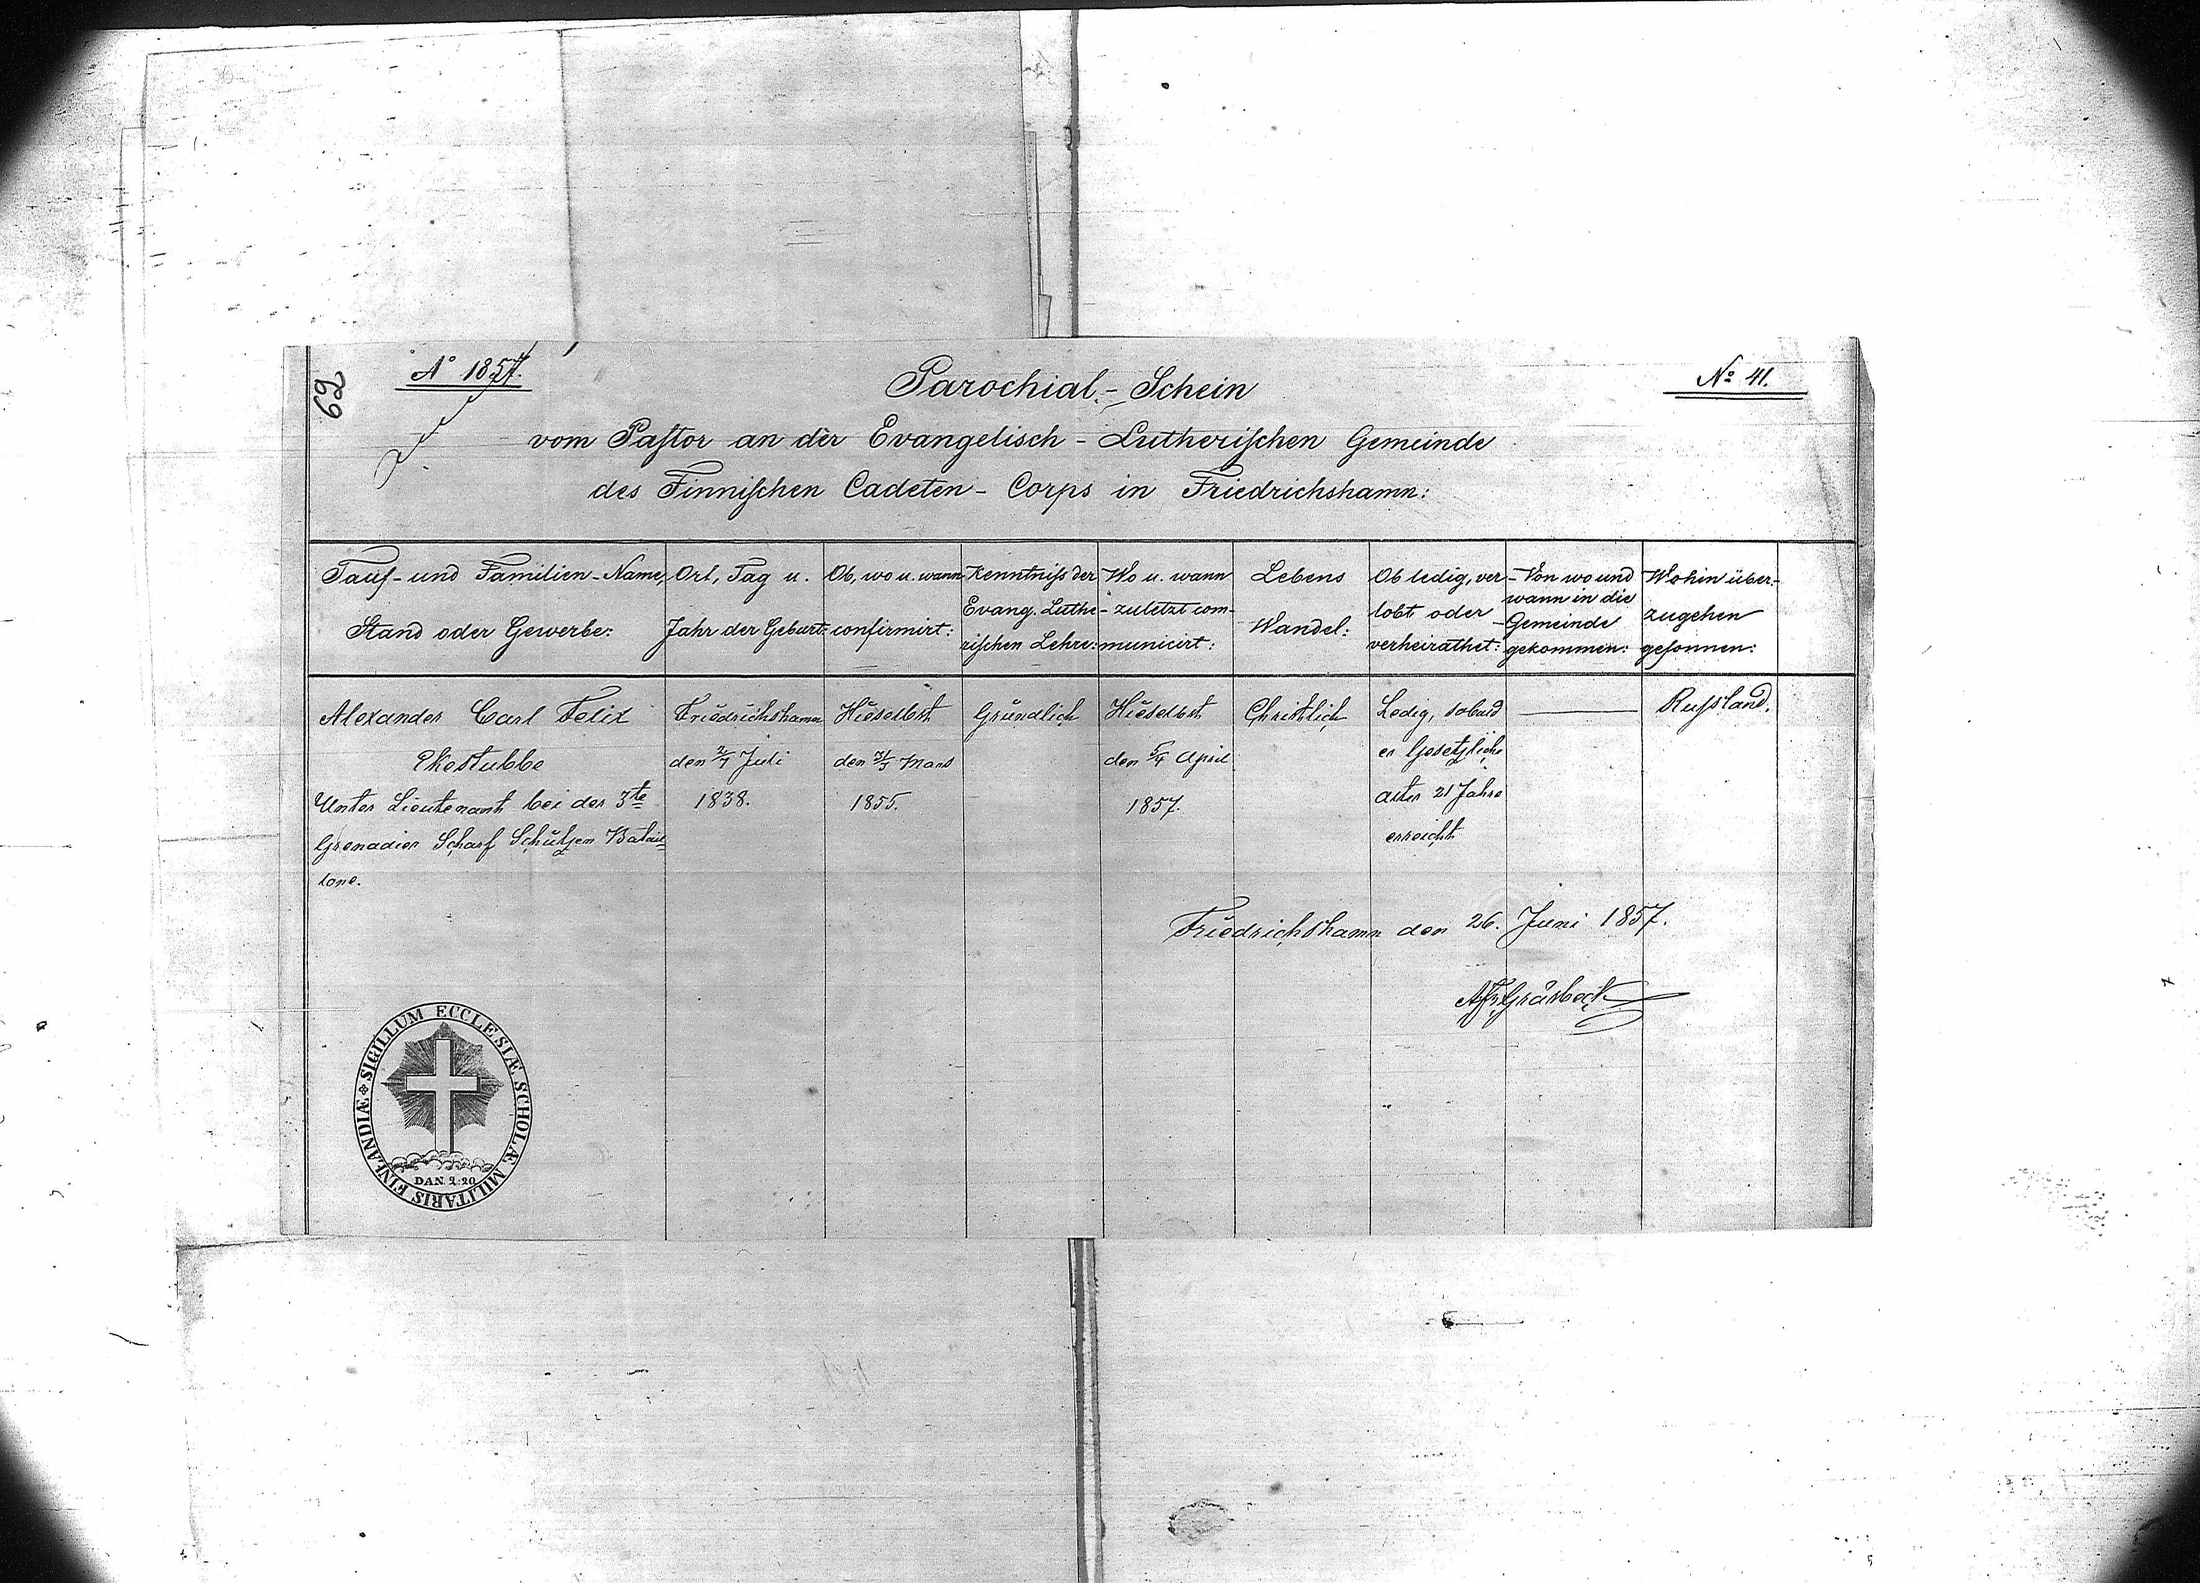 62
A° 1857.
N° 41.
Parochial-Schein
vom Paſtor an der Evangelisch-Lutheriſchen Gemeinde
des Finniſchen Cadeten-Corps in Friedrichshamn:
Tauf- und Familien-Name,
Stand oder Gewerbe:
Ort, Tag u.
Jahr der Geburt:
Ob, wo u. wann
confirmirt:
Kenntniſs der
Evang. Luthe-
riſchen Lehre:
Wo u. wann
zuletzt com-
municirt:
Lebens
Wandel:
Ob ledig, ver-
lobt oder
verheirathet:
Von wo und
wann in die
Gemeinde
gekommen:
Wohin über-
zugehen
geſonnen:
Alexander Carl Felix
Ekestubbe
Unter Lieutenant bei der 3te
Grenadier Scharf Schützen Batail-
lone.
Friedrichshamn
den 2/7 Juli
1838.
Hieselbst
den Mars
1855.
Gründlich
Hieselbst
den 5/4 April
1857.
Christlich
Ledig, sobald
er Gesetzliche
alter 21 Jahre
erreicht
Ruſsland.
Friedrichshamn den 26. Juni 1857.
Gråsbeck
SIGILLUM ECCLESIÆ SCHOLÆ MILITARIS FINLANDIÆ
DAN. 2.20